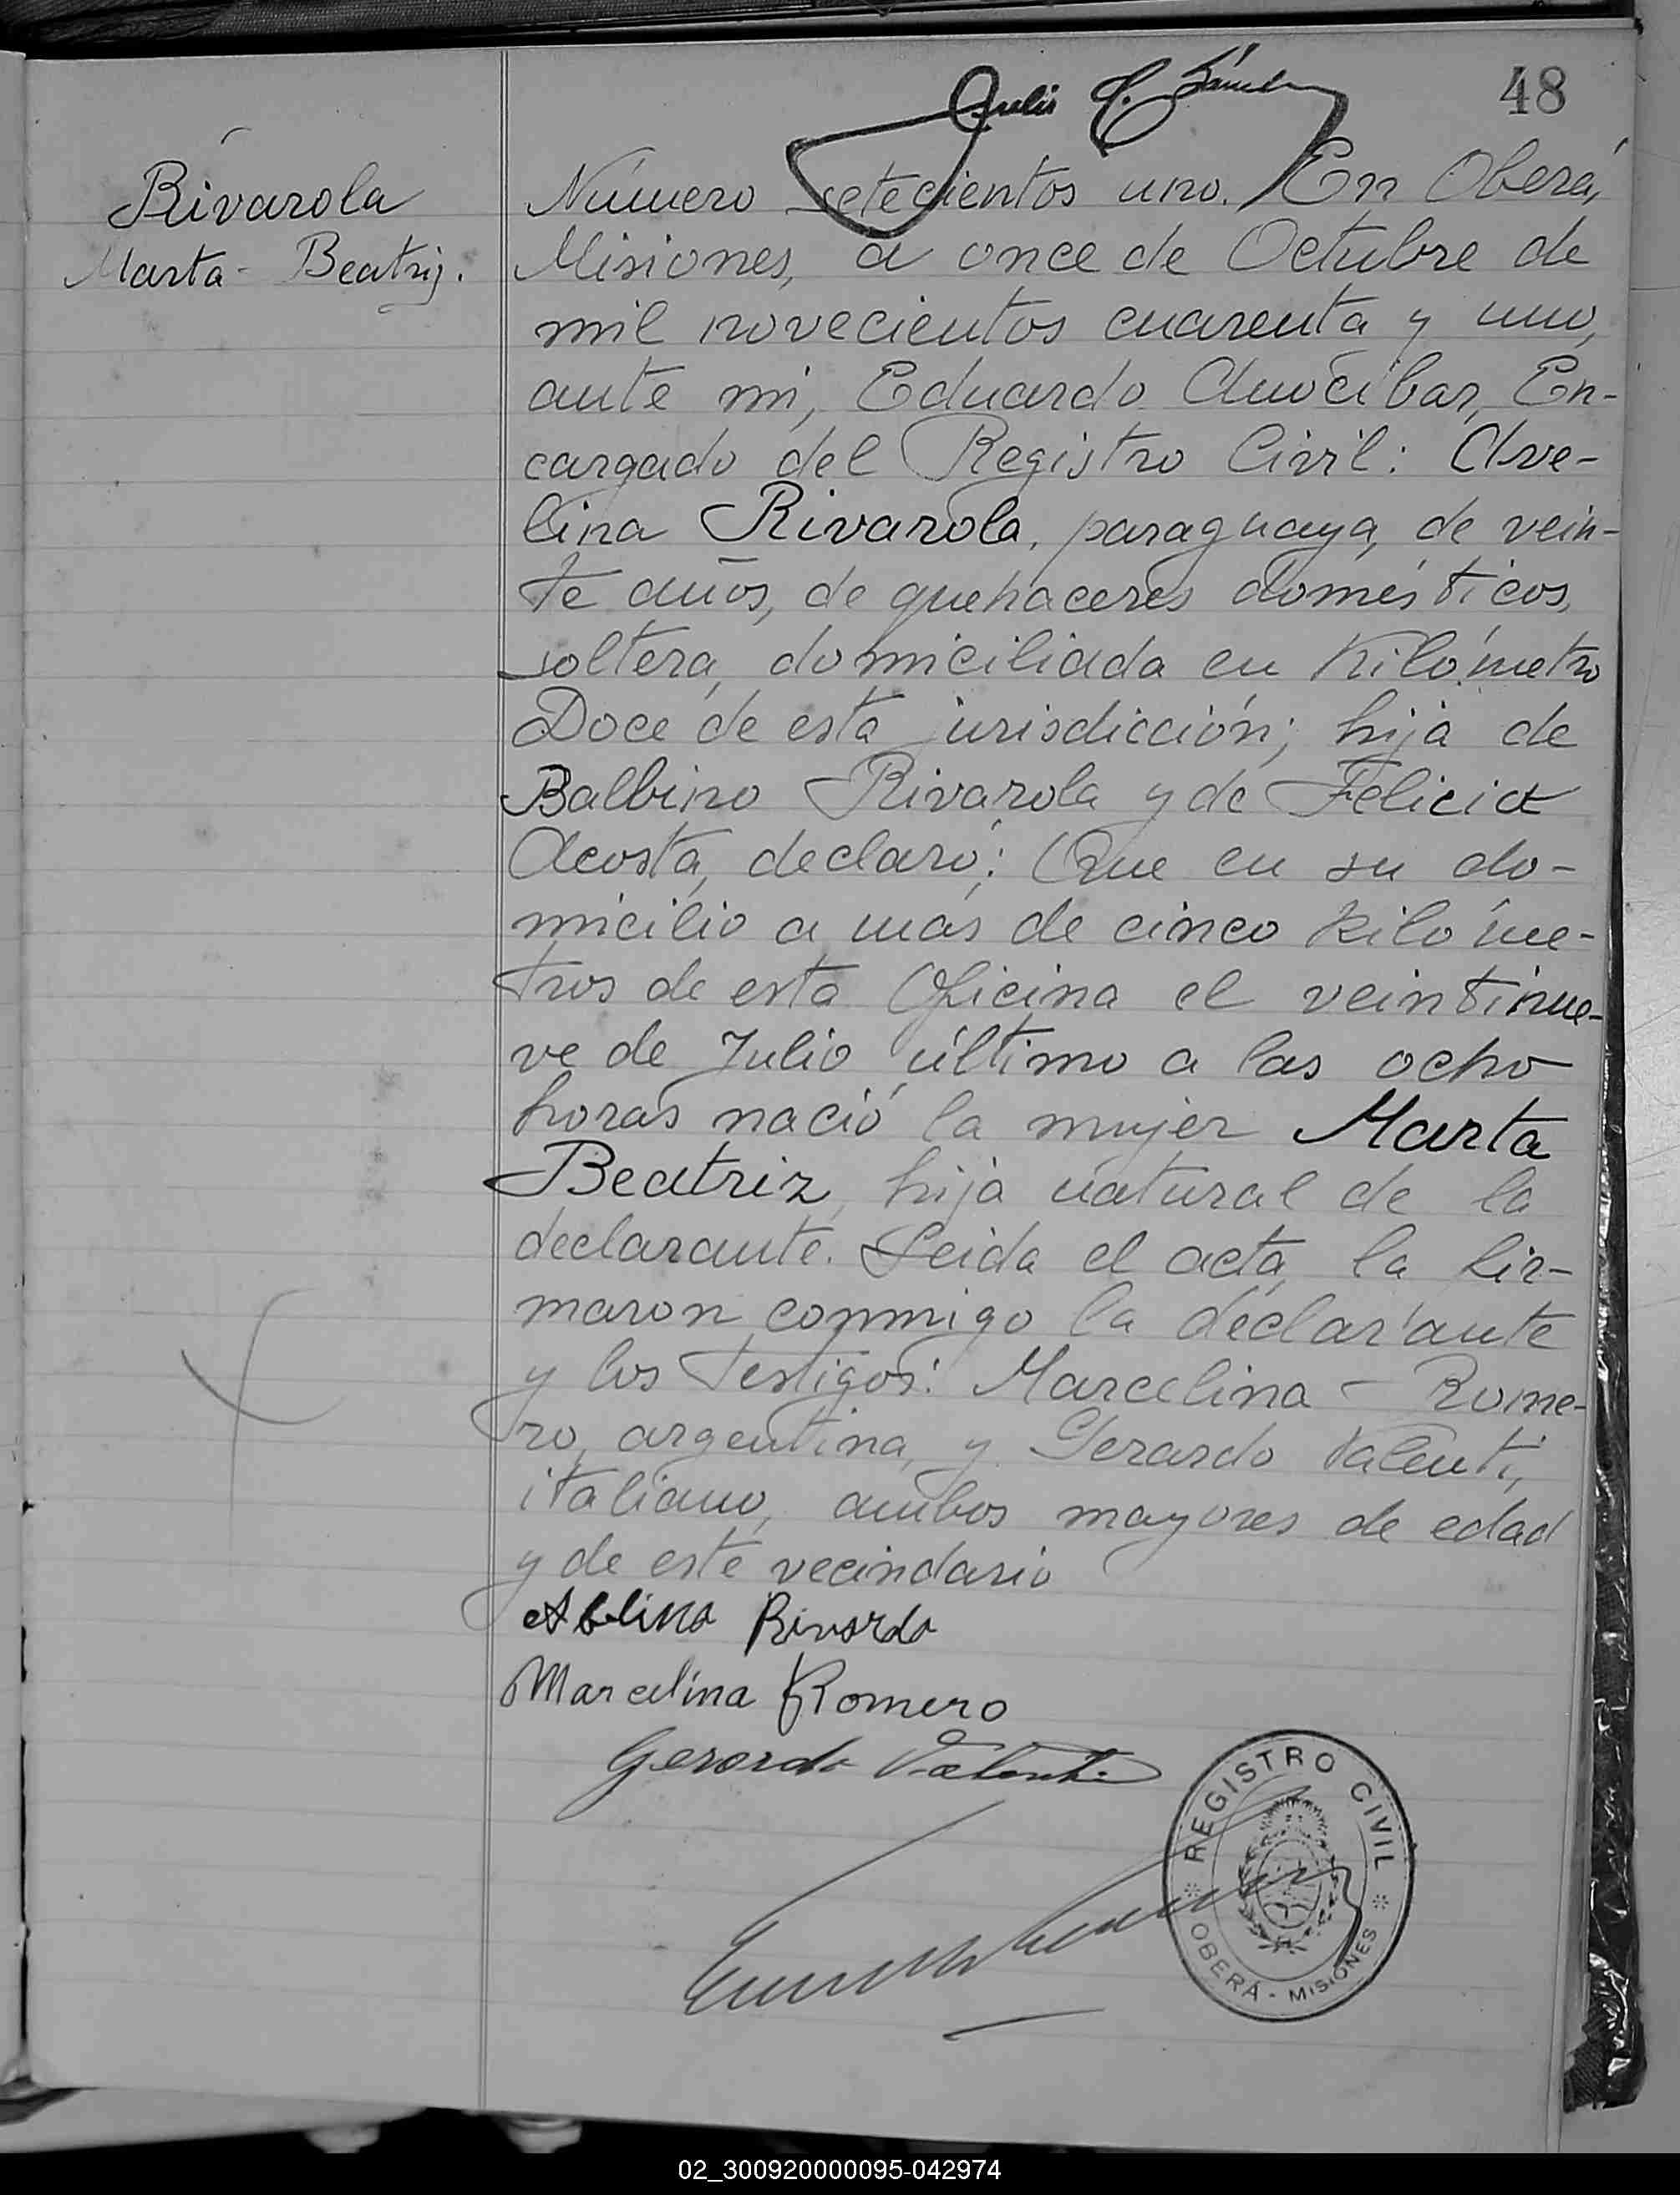 48
Rivarola
Marta - Beatriz.
Número setecientos uno. En Oberá,
Misiones, a once de Octubre de
mil novecientos cuarenta y uno,
ante mi, Eduardo Amocibar, En-
cargado del Registro Civil: Ave-
lina Rivarola, paraguaya, de vein-
te años, de quehaceres domésticos,
soltera, domiciliada en Kilómetro
Doce de esta jurisdicción; hija de
Balbino Rivarola y de Felicia
Acosta, declaró: Que en su do-
micilio a más de cinco kilóme-
tros de esta Oficina el veintinue-
ve de Julio último a las ocho
horas nació la mujer Marta
Beatriz, hija natural de la
declarante. Leida el acta, la fir-
maron conmigo la declarante
y los testigos: Marcelina - Rome-
ro, argentina, y Gerardo Valenti,
italiano, ambos mayores de edad
y de este vecindario
Ablina Rivarola
Marcelina Romero
Gerardo Valenti
REGISTRO CIVIL
OBERÁ - MISIONES
02_300920000095-042974